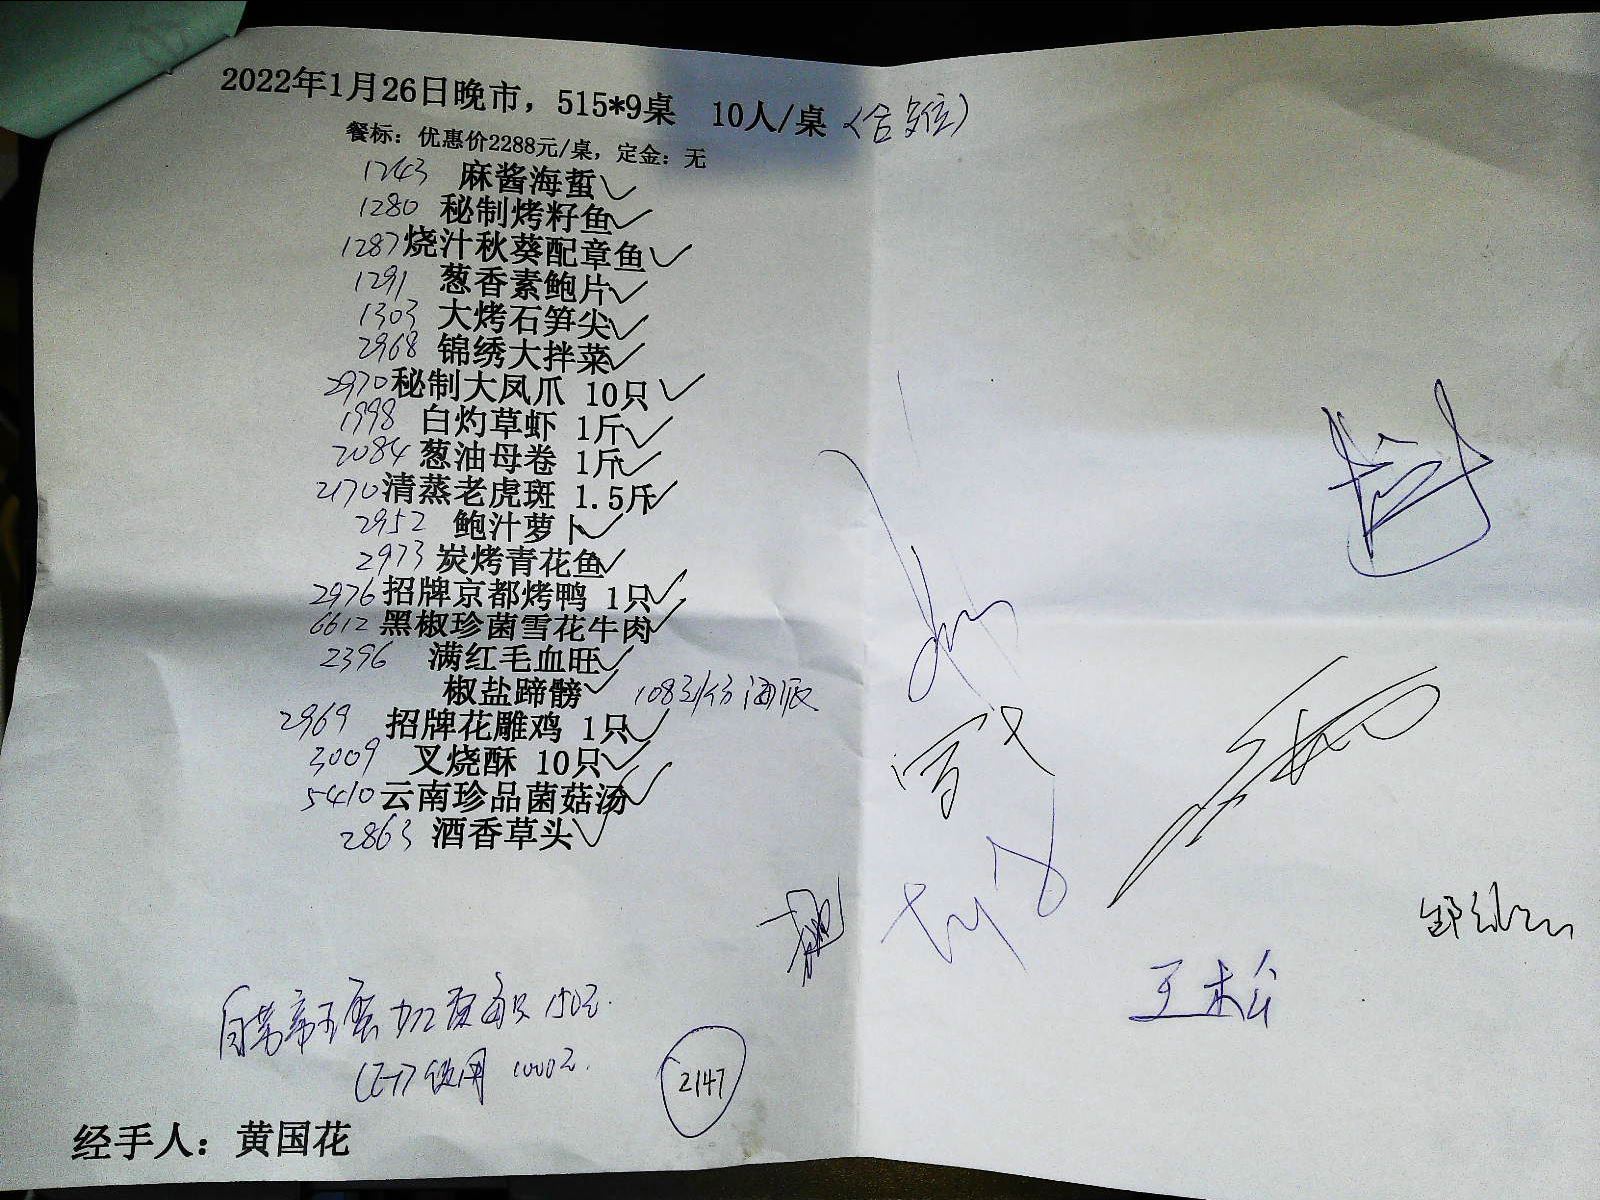 2022年1月26日晚市，515*9桌 10人/桌
餐标：优惠价2288元/桌，定金：无
1243 麻酱海蜇
1280 秘制烤籽鱼
1287 烧汁秋葵配章鱼
1291 葱香素鲍片
1303 大烤石笋尖
2968 锦绣大拌菜
2970 秘制大凤爪 10只
1998 白灼草虾 1斤
2084 葱油母卷 1斤
2170 清蒸老虎斑 1.5斤
2952 鲍汁萝卜
2973 炭烤青花鱼
2976 招牌京都烤鸭 1只
6612 黑椒珍菌雪花牛肉
2396 满红毛血旺
椒盐蹄髈 108
2969 招牌花雕鸡 1只
3009 叉烧酥 10只
5410 云南珍品菌菇汤
2863 酒香草头
王松
自带帝王蟹加工费每只150元
使用 1000元
2147
经手人：黄国花